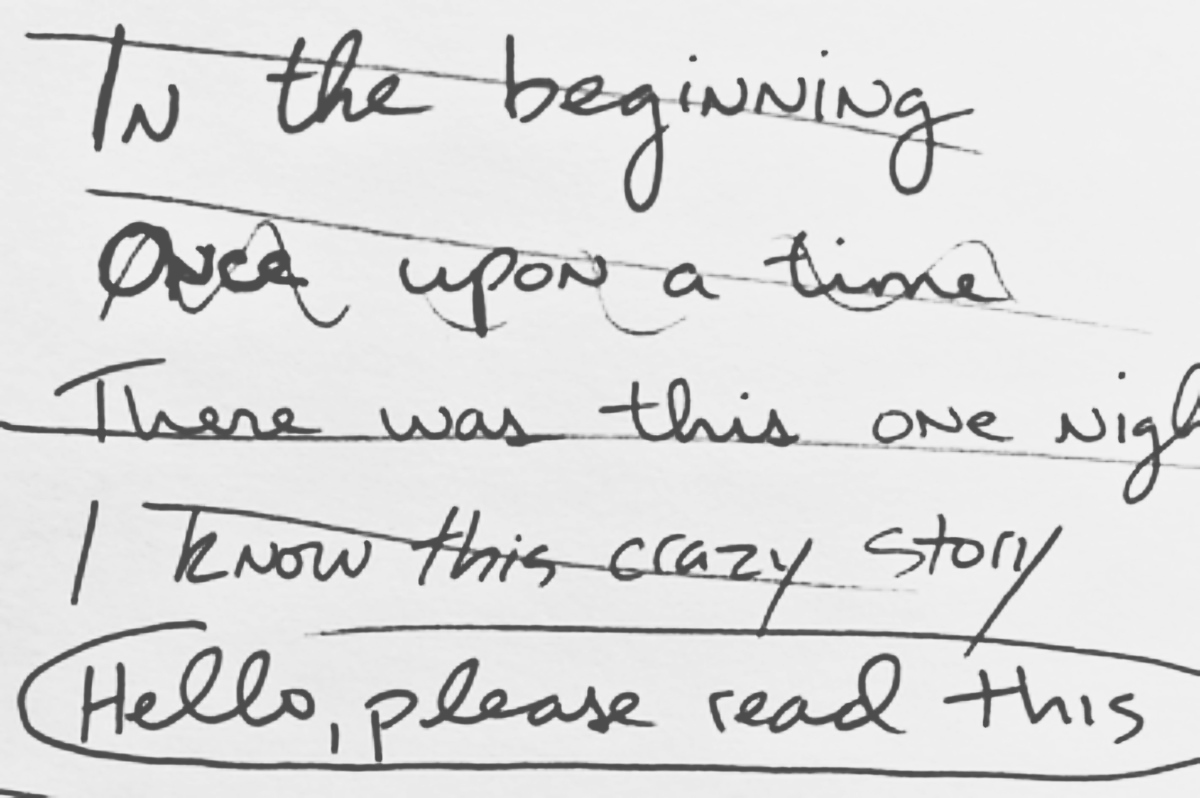 In the beginning
Once upon a time
There was this one nigh
I know this crazy story
Hello, please read this